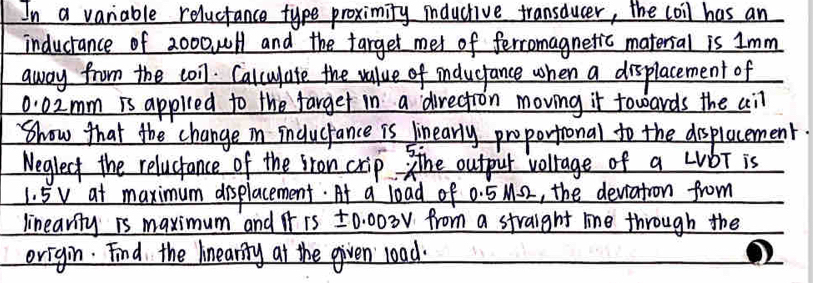 In a variable reluctance type proximity inductive transducer, the coil has an
inductance of 2000μH and the target met of ferromagnetic material is 1mm
away from the coil. Calculate the value of inductance when a displacement of
0.02mm is applied to the target in a direction moving it towards the coil
Show that the change in inductance is linearly proportional to the displacement.
Neglect the reluctance of the iron crip 5. The output voltage of a LVDT is
1.5V at maximum displacement. At a load of 0.5 MΩ, the deviation from
linearity is maximum and it is ±0.003V from a straight line through the
origin. Find the linearity at the given load.